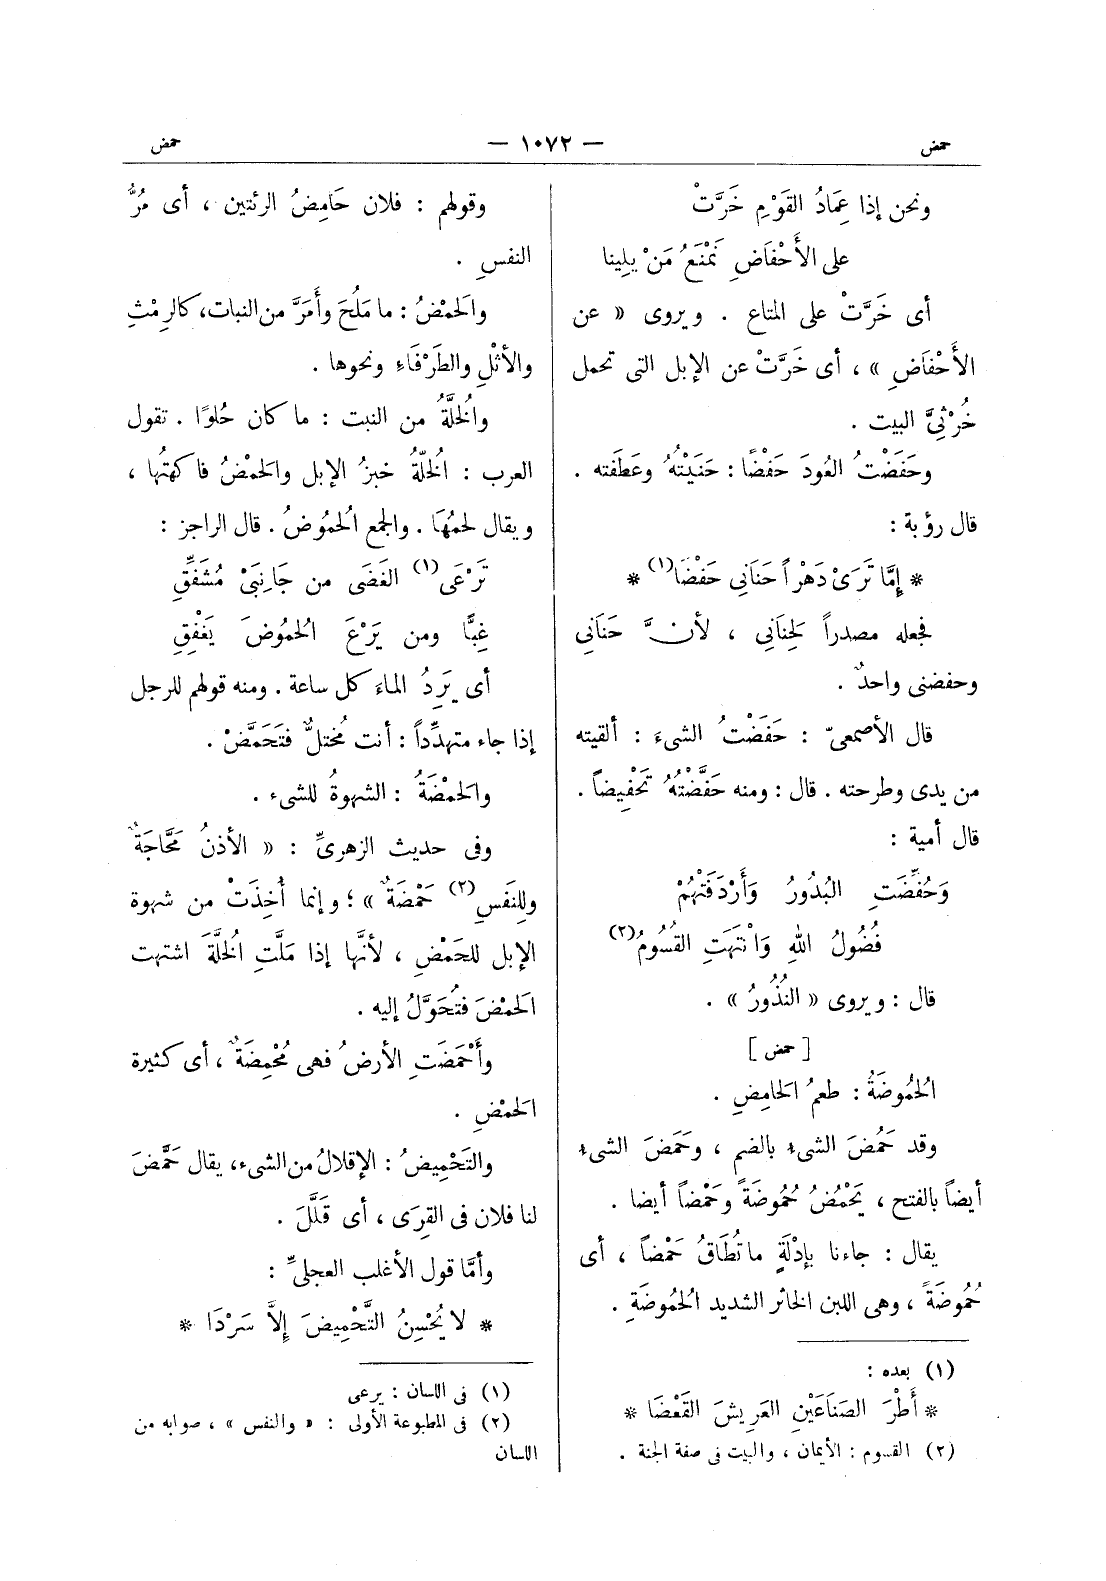 حمض — ١٠٧٢ — حمض
ونحن إذا عِمَادُ القَوْمِ خَرَّتْ
على الأَحْفَاضِ نَمْنَعُ مَنْ يلِينا
أى خَرَّتْ على المتاع . ويروى « عن
الأَحْفَاضِ » ، أى خَرَّتْ عن الإبل التى تحمل
خُرْثِىَّ البيت .
وحَفَضْتُ العُودَ حَفْضًا : حَنَيْتُهُ وعَطَفته .
قال رؤبة :
* إِمَّا تَرَىْ دَهْراً حَنَانِى حَفْضَا(١) *
فجعله مصدراً لَحِنَانِى ، لأنَّ حَنَانِى
وحفضنى واحدٌ .
قال الأصمعىّ : حَفَضْتُ الشىءَ : ألقيته
من يدى وطرحته . قال : ومنه حَفَّضْتُهُ تَحْفِيضاً .
قال أمية :
وَحُفِّضَتِ البُدُورُ وَأَرْدَفَتْهُمْ
فُضُولُ اللهِ وَانْتَهَتِ القُسُومُ(٢)
قال : ويروى « النُذُورُ » .
[ حمض ]
الحُمُوضَةُ : طعمُ الحَامِضِ .
وقد حَمُضَ الشىءُ بالضم ، وحَمَضَ الشىءُ
أيضاً بالفتح ، يَحْمُضُ حُمُوضَةً وحَمْضاً أيضا .
يقال : جاءنا بإدْلَةٍ ما تُطَاقُ حَمْضاً ، أى
حُمُوضَةً ، وهى اللبن الخاثر الشديد الحُمُوضَةِ .
(١) بعده :
* أَطْرَ الصَنَاعَيْنِ العَرِيشَ القَعْضَا *
(٢) القسوم : الأيمان ، والبيت فى صفة الجنة .
وقولهم : فلان حَامِضُ الرئتين ، أى مُرُّ
النفسِ .
والَحمْضُ : ما مَلُحَ وأَمَرَّ من النبات، كالرِمْثِ
والأثْلِ والطَرْفَاءِ ونحوها .
والُخلَّةُ من النبت : ما كان حُلوًا . تقول
العرب : الُخلَّةُ خبزُ الإبل والَحمْضُ فاكهتُها ،
ويقال لحمُهَا . والجمع الُحمُوضُ . قال الراجز :
تَرْعَى(١) الغَضَى من جَانِبَىْ مُشَفِّقِ
غِبًّا ومن يَرْعَ الُحمُوضَ يَغْفِقِ
أى يَرِدُ الماءَ كل ساعة . ومنه قولهم للرجل
إذا جاء متهدِّداً : أنت مُختلٌّ فتَحَمَّضْ .
والَحمْضَةُ : الشهوةُ للشىء .
وفى حديث الزهرىِّ : « الأذنُ مَجَّاجَةٌ
وللِنَفَسِ(٢) حَمْضَةٌ » ؛ وإنما أُخِذَتْ من شهوة
الإبل للحَمْضِ ، لأنَّها إذا مَلَّتِ الُخلَّةَ اشتهت
الَحمْضَ فتُحَوَّلُ إليه .
وأَحْمَضَتِ الأرضُ فهى مُحْمِضَةٌ ، أى كثيرة
الَحمْضِ .
والتَحْمِيضُ : الإقلالُ من الشىء، يقال حَمَّضَ
لنا فلان فى القِرَى ، أى قَلَّلَ .
وأمَّا قول الأغلب العجلىِّ :
* لا يُحْسِنُ التَّحْمِيضَ إِلاَّ سَرْدَا *
(١) فى اللسان : يرعى
(٢) فى المطبوعة الأولى : « والنفس » ، صوابه من
اللسان